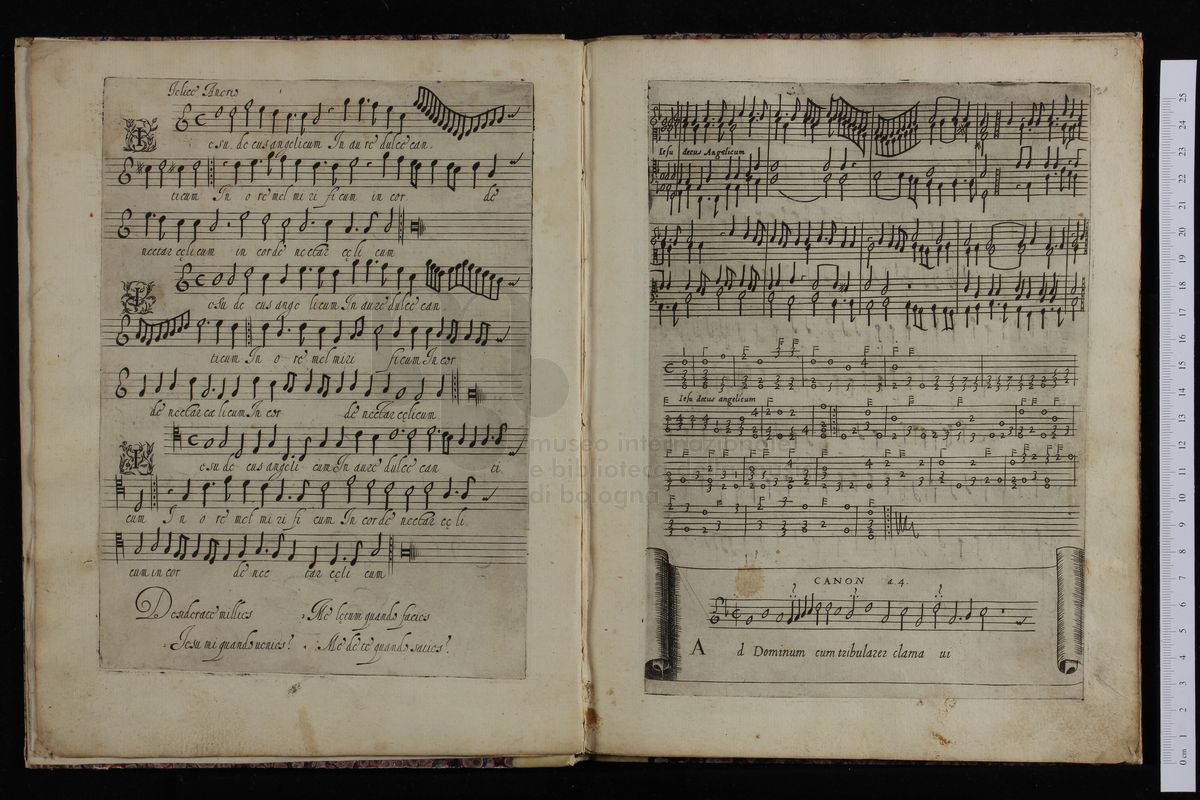 Felice Anerio
esu de cus angelicum In au re dulce can
ticum In o re mel mi ri ficum in cor de
nectar cęlicum in corde nectar cęli cum
esu de cus ange licum In aure dulce can
ticum In o re mel miri ficum In cor
de nectar cę licum In cor de nectar cęlicum
esu de cus angeli cum In aure dulce can ti
cum In o re mel mi ri fi cum In corde nectar cę li
cum in cor de nec tar cęli cum
Desiderate millies Me lętum quando facies
Iesu mi quando uenies? Me de te quando saties?
Iesu decus Angelicum
Iesu decus angelicum
CANON a.4.
A d Dominum cum tribularer clama ui
museo internazionale
e biblioteca della musica
di bologna
0 cm 1 2 3 4 5 6 7 8 9 10 11 12 13 14 15 16 17 18 19 20 21 22 23 24 25